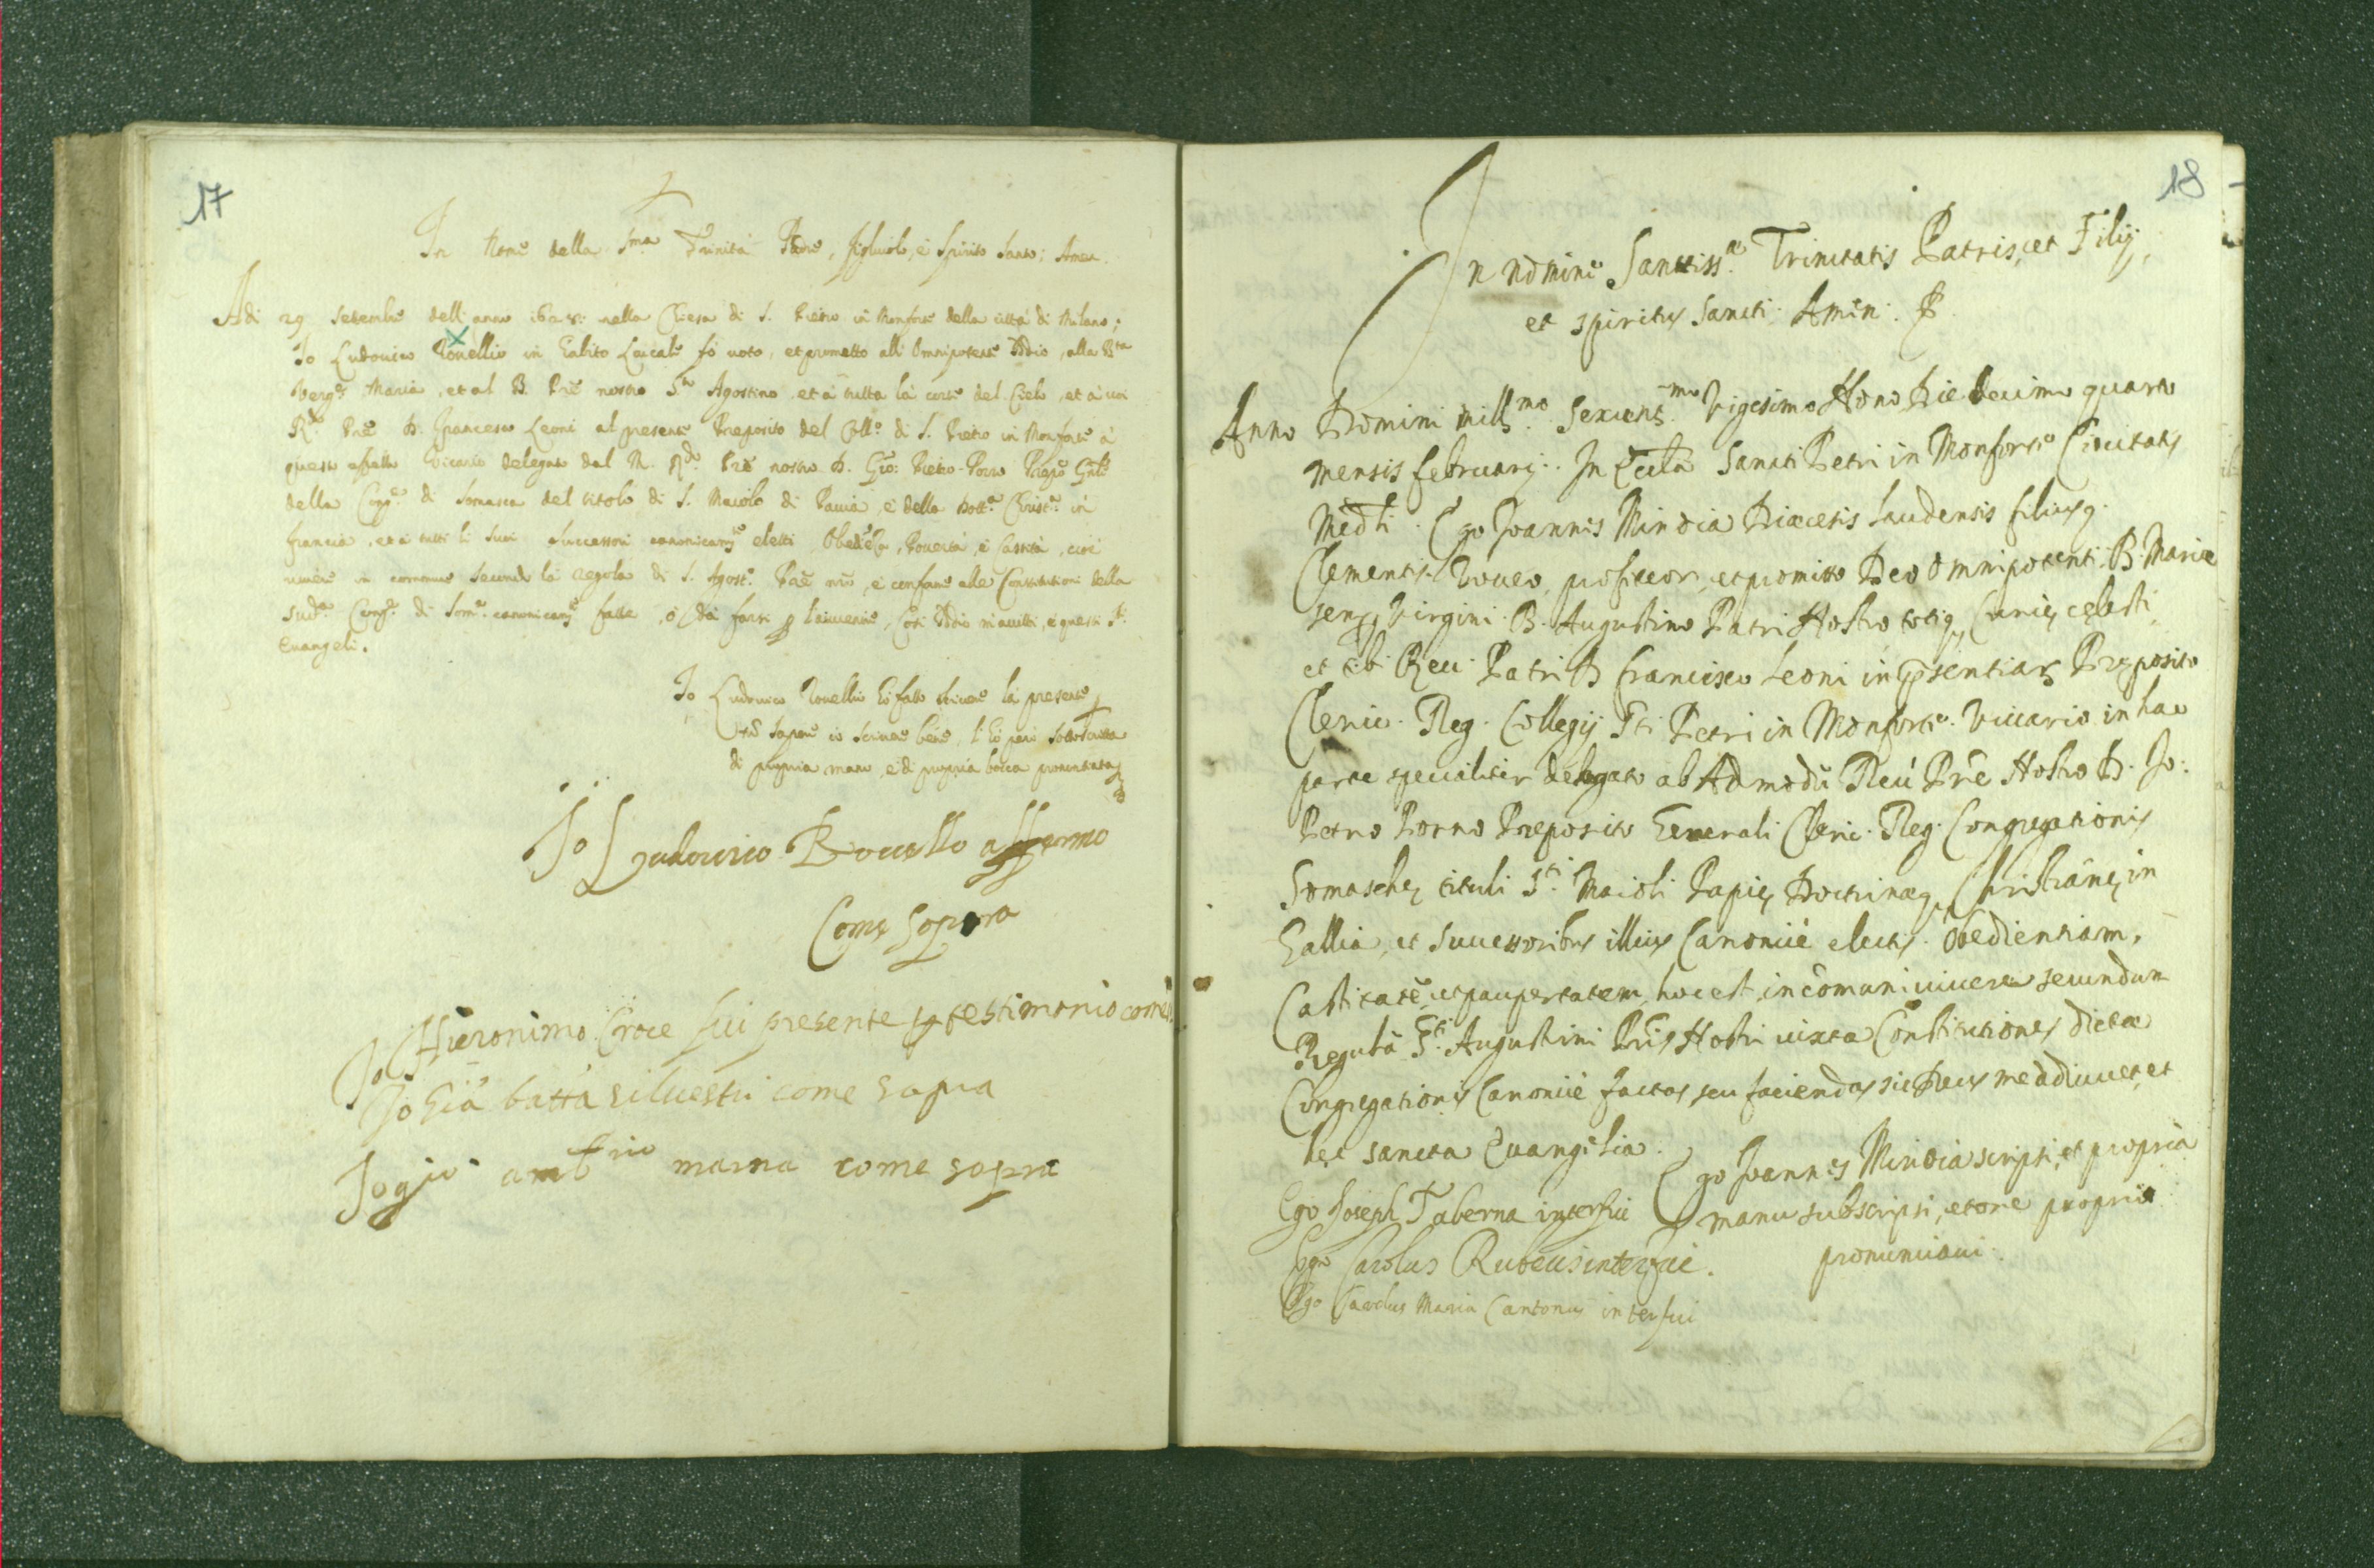 17
In Nome della Sma Trinità Padre, figliuolo, e Spirito Santo; Amen.
Adi 29 Setembre dell'anno 1628: nella Chiesa di S. Pietro in Monforte della città di Milano;
Io Ludovico Rouellio in habito Laicale fò voto, et prometto all'Omnipotente Iddio, alla Bta
Verge Maria, et al B. Prē nostro Sto Agostino, et à tutta la corte del Cielo, et à voi
Rdo Prē D. Francesco Leoni al presente Preposito del Collo di S. Pietro in Monforte à
questo effetto Vicario delegato dal M. Rdo Prē nostro D. Gio: Pietro Porro Prepto Gnle
della Congne di Somasca del titolo di S. Maiolo di Pavia, e della Dottna Christna in
francia, et à tutti li suoi successori canonicamte eletti Obediēza, Povertà, e Castità, cioè
vivere in commune secondo la regola di S. Agosto Prē nrō, e conforme alle Constitutioni della
sudta Congne di Soma canonicamte fatte, ò da farsi p l'auuenire, Così Iddio m'aiutti, e questi Sti
Euangeli.
Io Ludovico Rouellio hò fatto scrivere la presente
nō sapere io scrivere bene, l'hò però sottoscritta
di propria mano, e di propria bocca pronuntiata
Io Ludovico Rouello affermo
Come sopra
Io Hieronimo Croce fui presente p testimonio come s.
Io Giō batta siluestri come sopra
Io gio ambrio marna come sopra
18
In nomine Sanctissæ Trinitatis Patris, et Filij,
et spiritus sancti. Amen.
Anno Domini millmo Sexcentmo Vigesimo Nono Die decimo quarto
mensis february. In Eccla Sancti Petri in Monforte Civitatis
Medli. Ego Joannes Mindia Diœcesis laudensis filius q.
Clementis. Voueo, profiteor, et promitto Deo Omnipotenti. B. Mariæ
semp Virgini. B. Augustino Patri Nostro totiq Curię cęlesti,
et tibi Reu. Patri D francisco Leoni in psentiar Pręposito
Cleric. Reg. Collegij Sti Petri in Monforte. Vicario in hac
parte specialiter delegato ab Admodū Reū Prē Nostro D. Jo:
Petro Porro Preposito Generali Cleric. Reg. Congregationis
Somaschę tituli Sti Maioli Papię, Doctrinæq Christianę in
Gallia, et successoribus illius Canonicè electis. Obedientiam,
Castitatē, et paupertatem, hoc est, in cōmuni uiuere secundum
Regulā Sti Augustini Pris Nostri iuxta Constitutiones dictæ
Congregationis Canonicè factas, seu faciendas sic Deus me adiuuet, et
hęc sancta Euangelia.
Ego Joannes Mindia scripsi, et propria
manu subscripsi, et ore proprio
pronunciaui.
Ego Joseph Taberna interfui
Ego Carolus Rubeus interfui.
Ego Carolus Maria Cantonus interfui